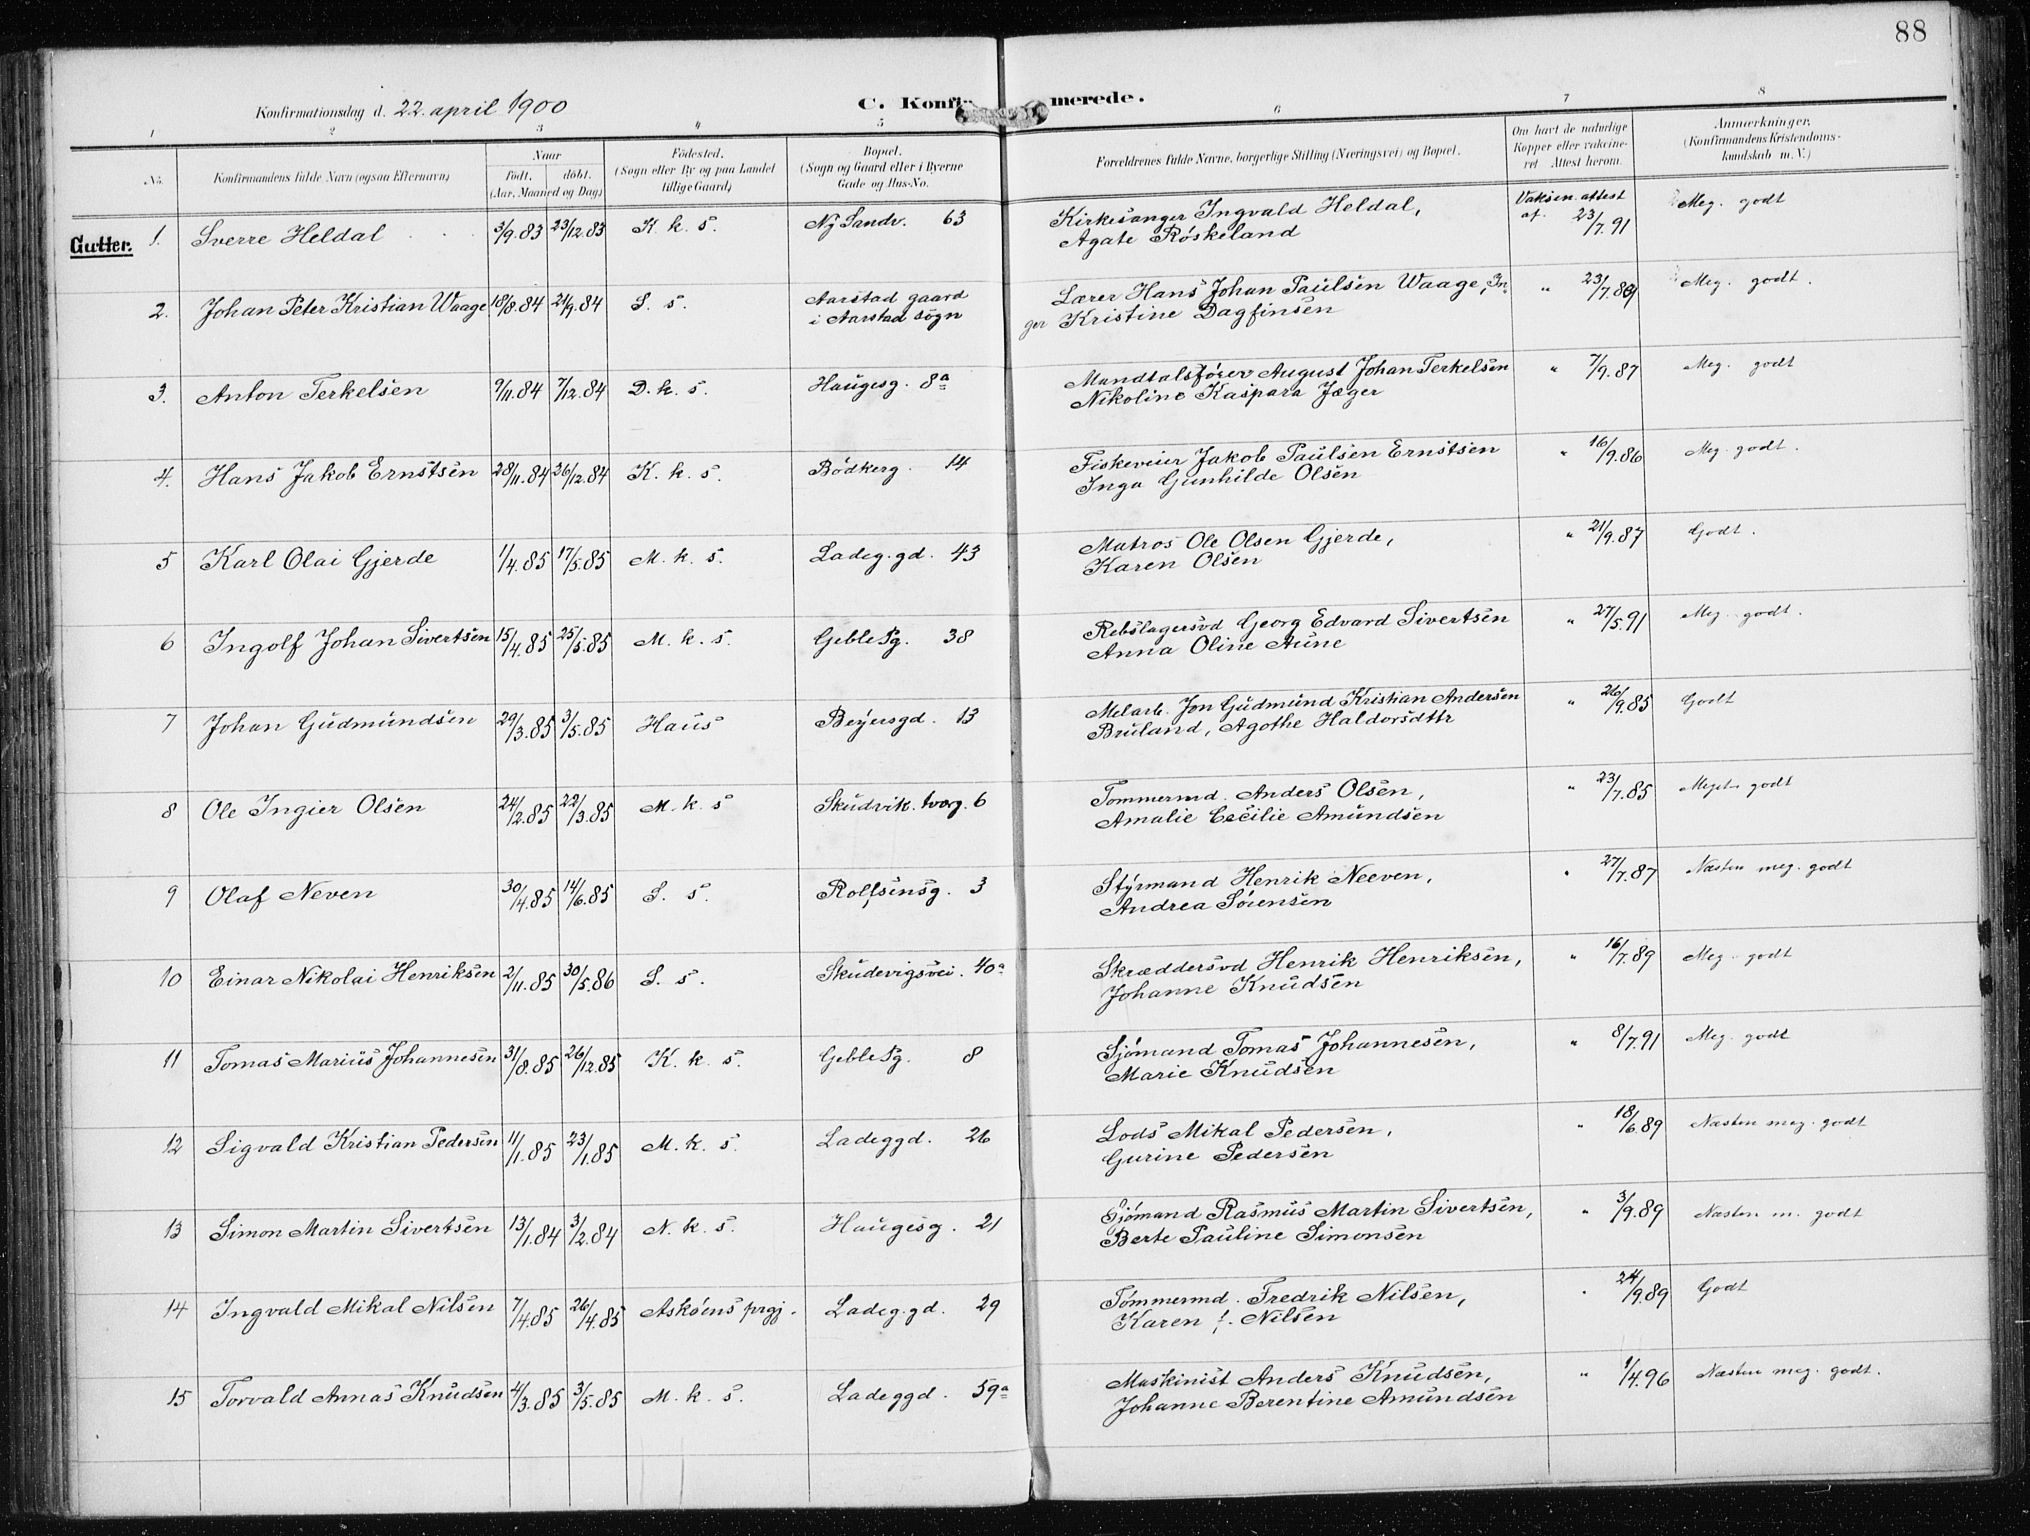 88
Konfirmationsdag d. 22. april 1900 C. Konfir merede.
1 2 3 4 5 6 7 8
No. Konfirmandens fulde Navn (ogsaa Efternavn) Naar født. døbt. (Aar, Maaned og Dag) Fødested. (Sogn eller By og paa Landet tillige Gaard) Bopæl. (Sogn og Gaard eller i Byerne Gade og Hus-No. Forældrenes fulde Navne, borgerlige Stilling (Næringsvei) og Bopæl. Om havt de naturlige Kopper eller vaccineret Attest herom. Anmærkninger. (Konfirmandens Kristendomskundskab m. V.)
Gutter.
1. Sverre Heldal 3/9.83 23/12.83 K. k. s. Ny Sandv. 63 Kirkesanger Ingvald Heldal, Vaksin. attest Meg. godt
Agate Røskeland af. 23/7.91
2. Johan Peter Kristian Waage 18/8.84 21/9.84 S. s. Aarstad gaard Lærer Hans Johan Paulsen Waage, In- " 23/7.89 Meg. godt.
i Aarstad sogn ger Kristine Dagfinsen
3. Anton Terkelsen 9/11.84 7/12.84 D. k. s. Haugesg. 8a Mandtalsfører August Johan Terkelsen " 7/9.87 Meg. godt
Nikoline Kaspara Jæger
4. Hans Jakob Ernstsen 28/11.84 26/12.84 K. k. s. Bødkerg. 14 Fiskeveier Jakob Paulsen Ernstsen " 16/9.86 Meg. godt.
Inga Gunhilde Olsen
5 Karl Olai Gjerde 1/4.85 17/5.85 M. k. s. Ladeg.gd. 43 Matros Ole Olsen Gjerde, " 21/9.87 Godt.
Karen Olsen
6 Ingolf Johan Sivertsen 15/4.85 25/5.85 M. k. s. Geblesg. 38 Rebslagersvd Georg Edvard Sivertsen " 27/5.91 Meg. godt.
Anna Oline Aune
7 Johan Gudmundsen 29/3.85 3/5.85 Haus Beyersgd. 13 Melarb. Jon Gudmund Kristian Andersen " 26/9.85 Godt
Bruland, Agothe Haldorsdttr
8 Ole Ingier Olsen 24/2.85 22/3.85 M. k. s Skudvik. torg. 6 Tømmermd. Anders Olsen, " 23/7.85 Meget godt
Amalie Cecilie Amundsen
9 Olaf Neven 30/4.85 14/6.85 S. s. Rolfsensg. 3 Styrmand Henrik Neeven, " 27/7.87 Næsten meg. godt
Andrea Sørensen
10 Einar Nikolai Henriksen 2/11.85 30/5.86 S. s. Skudevigsvei. 40a Skræddersvd Henrik Henriksen, " 16/7.89 Meg. godt
Johanne Knudsen
11 Tomas Marius Johannesen 31/8.85 26/12.85 K. k. s. Geblesg. 8 Sjømand Tomas Johannesen, " 8/7.91 Meg. godt
Marie Knudsen
12 Sigvald Kristian Pedersen 11/1.85 23/1.85 M. k. s. Ladeggd. 26 Lods Mikal Pedersen, " 18/6.89 Næsten meg. godt
Gurine Pedersen
13 Simon Martin Sivertsen 13/1.84 3/2.84 N. k. s. Haugesg. 21 Sjømand Rasmus Martin Sivertsen, " 3/9.89 Næsten m. godt
Berte Pauline Simonsen
14 Ingvald Mikal Nilsen 7/4.85 26/4.85 Askøens prgj. Ladeg.gd. 29 Tømmermd. Fredrik Nilsen, " 24/9.89 Godt
Karen f. Nilsen
15 Torvald Annas Knudsen 4/3.85 3/5.85 M. k. s. Ladeggd. 59a Maskinist Anders Knudsen, " 1/4.96 Næsten meg. godt.
Johanne Berentine Amundsen